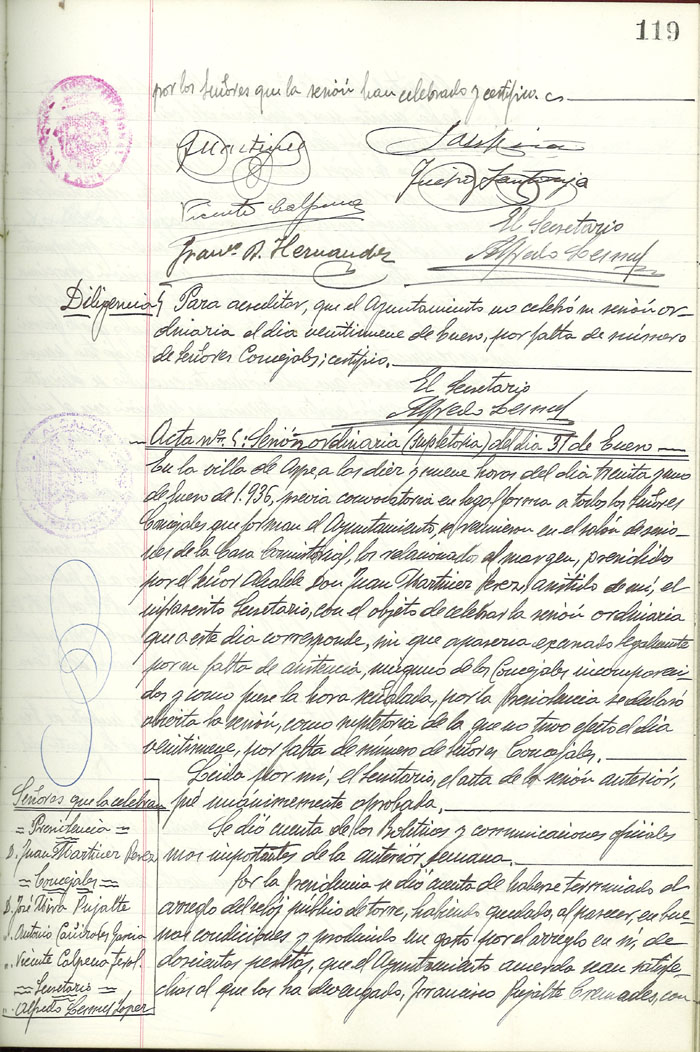 119
por los Señores que la sesión han celebrado y certifico.
Vicente Calpena
El Secretario
Franco. A. Hernandez
Alfredo Cesmel
Diligencia
Para acreditar, que el Ayuntamiento no celebró su sesión or-
dinaria el dia veintinueve de Enero, por falta de número
de Señores Concejales; certifico.
El Secretario
Alfredo Cesmel
Acta nº. 5: Sesión ordinaria (supletoria) del dia 31 de Enero
En la villa de Aspe a las diez y nueve horas del dia treinta y uno
de Enero de 1.936, previa convocatoria en legal forma a todos los Señores
Concejales que forman el Ayuntamiento, se reunieron en el salón de sesio-
nes de la Casa Consistorial, los relacionados al margen, presididos
por el Señor Alcalde Don Juan Martinez Perez, asistido de mi, el
infrascrito Secretario, con el objeto de celebrar la sesión ordinaria
que a este dia corresponde, sin que aparezca excusado legalmente
por su falta de asistencia, ninguno de los Concejales incompareci-
dos y como fuese la hora señalada, por la Presidencia se declaró
abierta la sesión, como supletoria de la que no tuvo efecto el dia
veintinueve, por falta de número de Señores Concejales.
Leida por mi, el Secretario, el acta de la sesión anterior,
fué unánimemente aprobada.
Se dió cuenta de los Boletines y comunicaciones oficiales
mas importantes de la anterior semana.
Por la Presidencia se dió cuenta de haberse terminado el
arreglo del reloj público de torre, habiendo quedado, al parecer, en bue-
nas condiciones y produciendo un gasto por el arreglo en si, de
doscientas pesetas, que el Ayuntamiento acuerda sean satisfe-
chas al que las ha devengado, Francisco Pujalte Cremades, con
Señores que la celebran
= Presidencia =
D. Juan Martinez Perez
= Concejales =
D. José Mira Pujalte
" Antonio Cañizales Garcia
" Vicente Calpena
= Secretario =
" Alfredo Cesmel Lopez